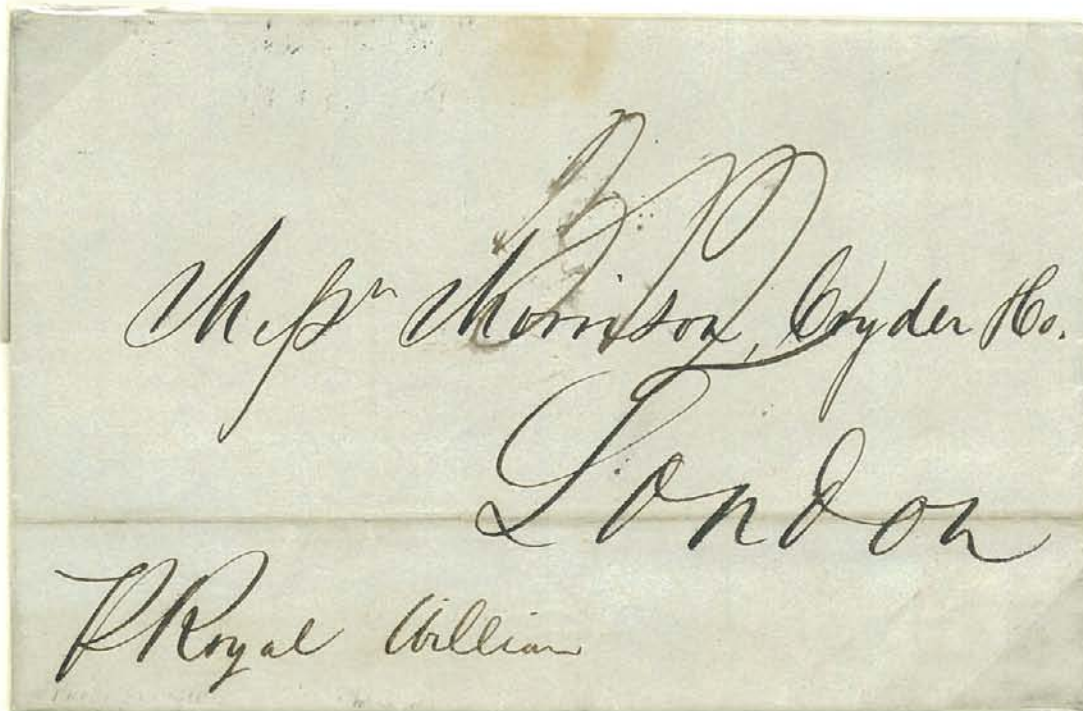 Messrs Morrison, Cryder & Co.
London
P Royal William